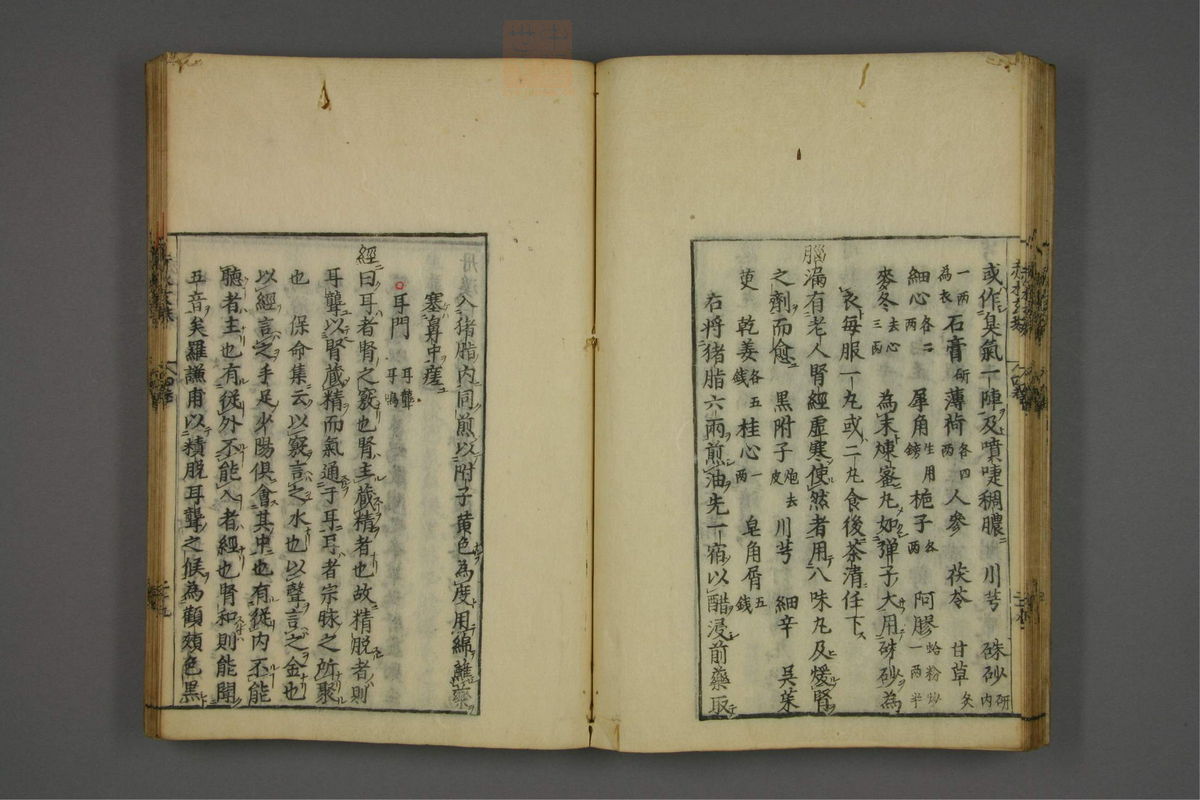 或作臭氣一陣及噴啑稠膿 川芎 硃砂研内
一兩為衣 石膏研 薄荷各四兩 人參 茯苓 甘草炙
細心各二兩 犀角生用鎊 梔子各兩 阿膠蛤粉炒一兩半
麥冬去心三兩 為末煉蜜丸如彈子大用硃砂為
衣每服一丸或二丸食後茶清任下
腦漏有老人腎經虛寒使然者用八味丸及煖腎
之劑而愈 黒附子炮去皮 川芎 細辛 吳茱
萸 乾姜各五錢 桂心一兩 皂角屑五錢
右将猪脂六兩煎油先一宿以醋浸前藥取
入猪脂内同煎以附子黄色為度用綿蘸藥
塞鼻中瘥
耳門 耳聾 耳鳴
經曰耳者腎之竅也腎主藏精者也故精脫者則
耳聾以腎藏精而氣通于耳耳者宗脉之所聚
也 保命集云以竅言之水也以聲言之金也
以經言之手足少陽俱會其中也有従内不能
聽者主也有従外不能入者經也腎和則能聞
五音矣羅謙甫以精脱耳聾之候為顴頰色黒